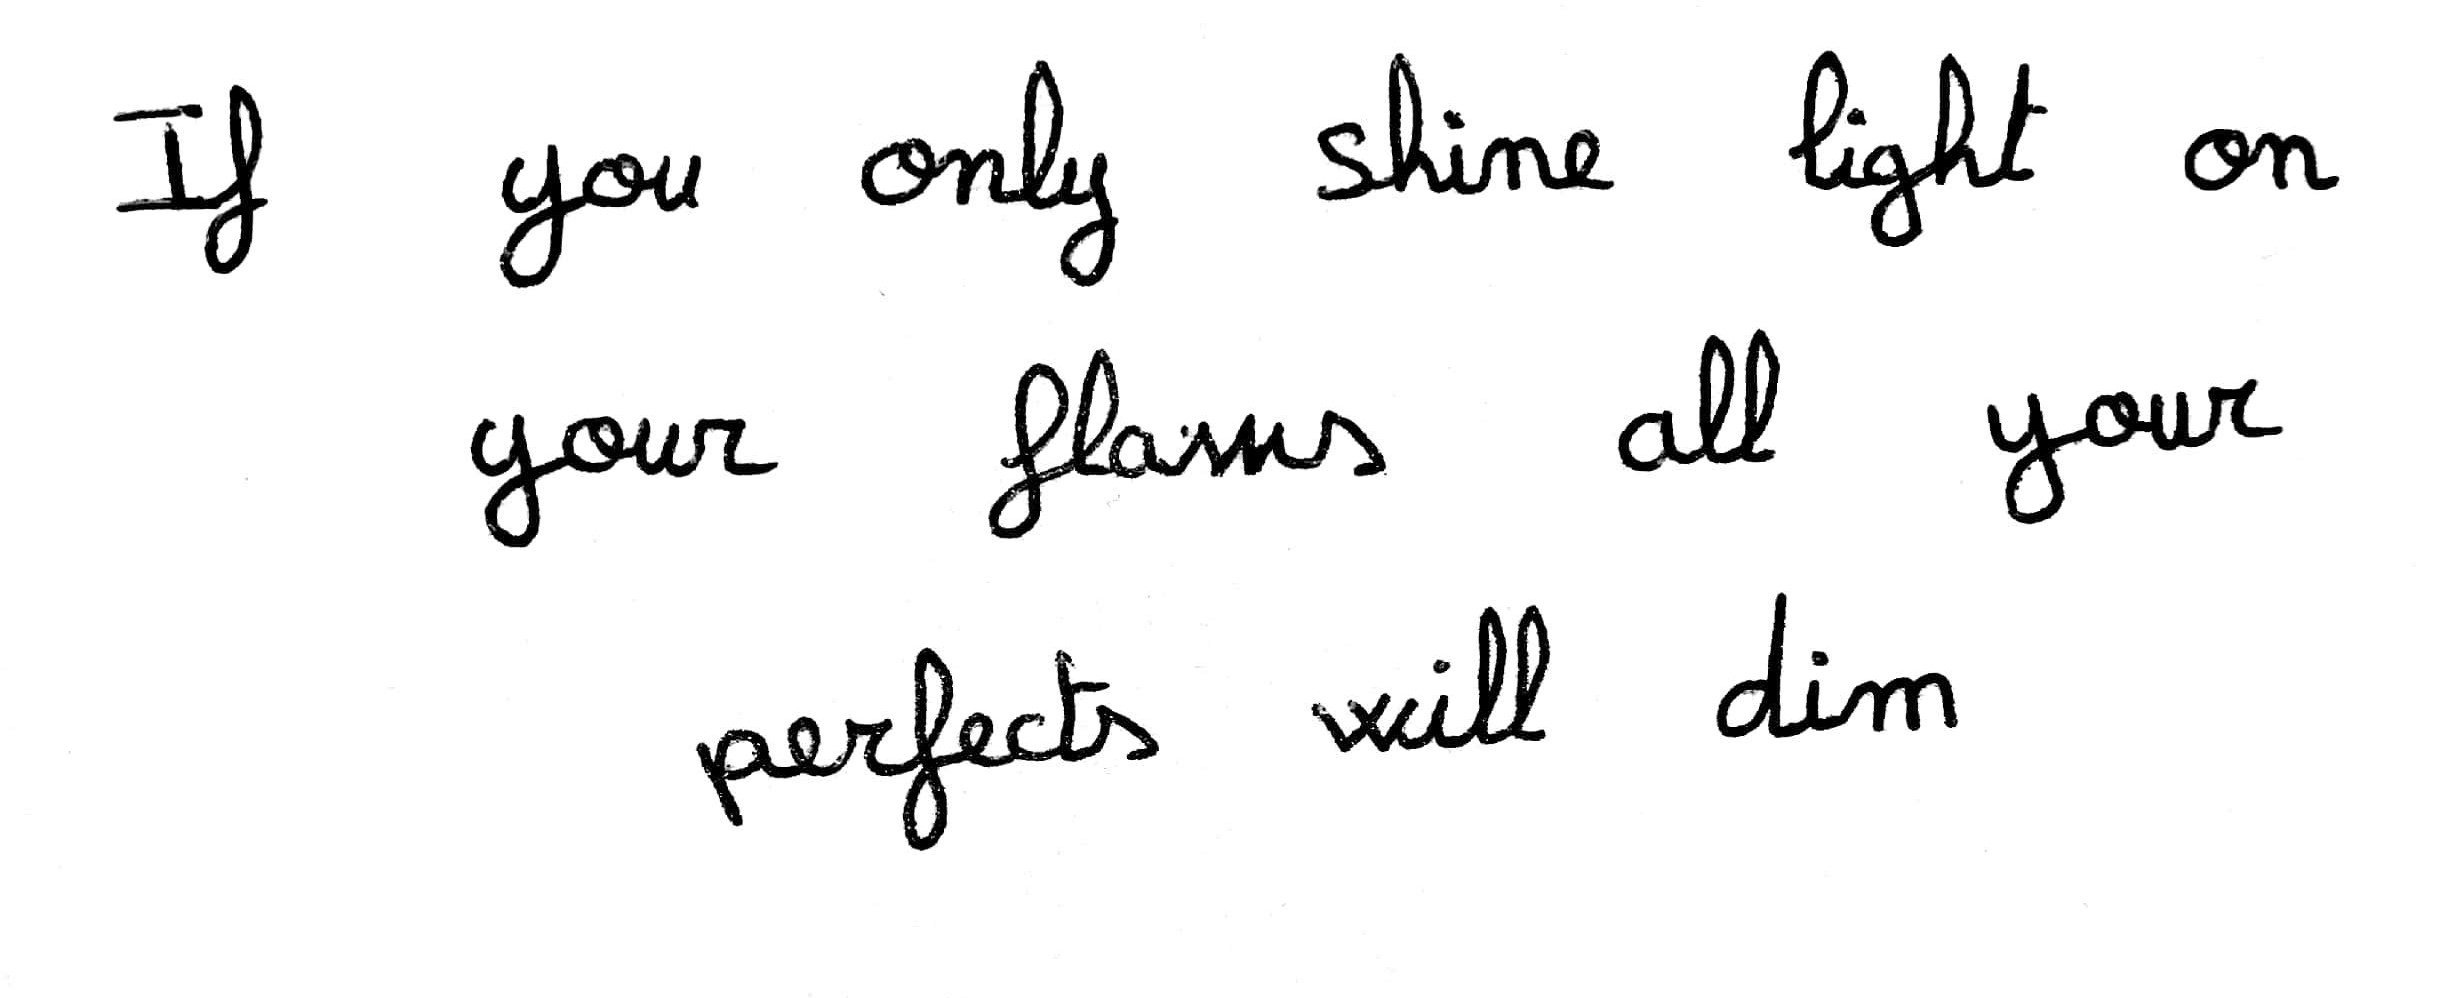 If you only shine light on
your flaws all your
perfects will dim